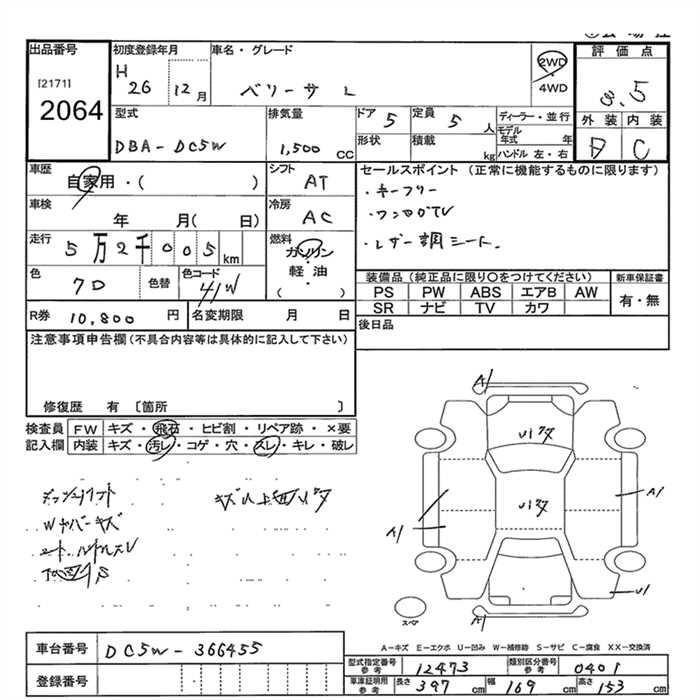 出品番号
[2171]
2064
初度登録年月
H 26 12 月
車名・グレード
ベリーサ L
2WD
4WD
評価点
3.5
外装 内装
C
型式
DBA-DC5W
排気量
1,500 CC
ドア 5
形状
定員 5 人
積載 kg
ディーラー・並行
モデル
年式 年
ハンドル 左・右
車歴
自家用・( )
シフト
AT
車検
年 月( 日)
冷房
AC
走行
5万2千005 km
燃料
ガソリン
軽油
・
( )
色
クロ
色替
色コード
41W
R券 10,800 円
名変期限 月 日
セールスポイント (正常に機能するものに限ります)
・キーフリー
・ワンセグTV
・レザー調シート.
装備品(純正品に限り○をつけてください)
新車保証書
PS PW ABS エアB AW
SR ナビ TV カワ
有・無
後日品
注意事項申告欄(不具合内容等は具体的に記入して下さい)
修復歴 有 〔箇所 〕
検査員
記入欄
FW キズ・飛石・ヒビ割・リペア跡・×要
内装 キズ・汚レ・コゲ・穴・スレ・キレ・破レ
A1
A1
A1
A1
U1
スペア
A-キズ E-エクボ U-凹み W-補修跡 S-サビ C-腐食 XX-交換済
車台番号 DC5W-366455
登録番号
型式指定番号
参考
12473
類別区分番号
参考
0401
車庫証明用
参考
長さ 397 cm 幅 169 cm 高さ 153 cm